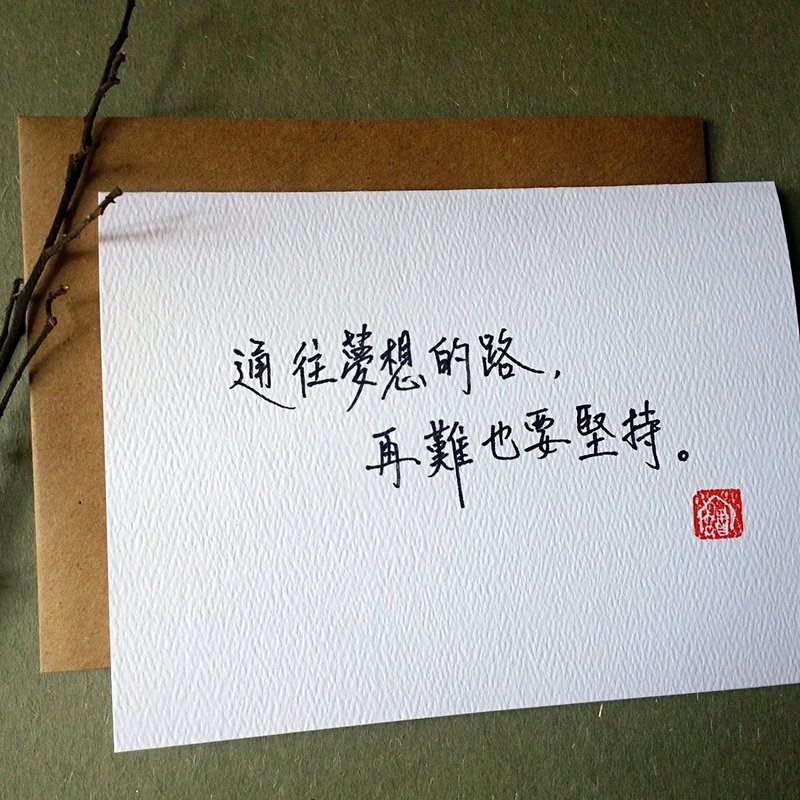 通往夢想的路，
再難也要堅持。